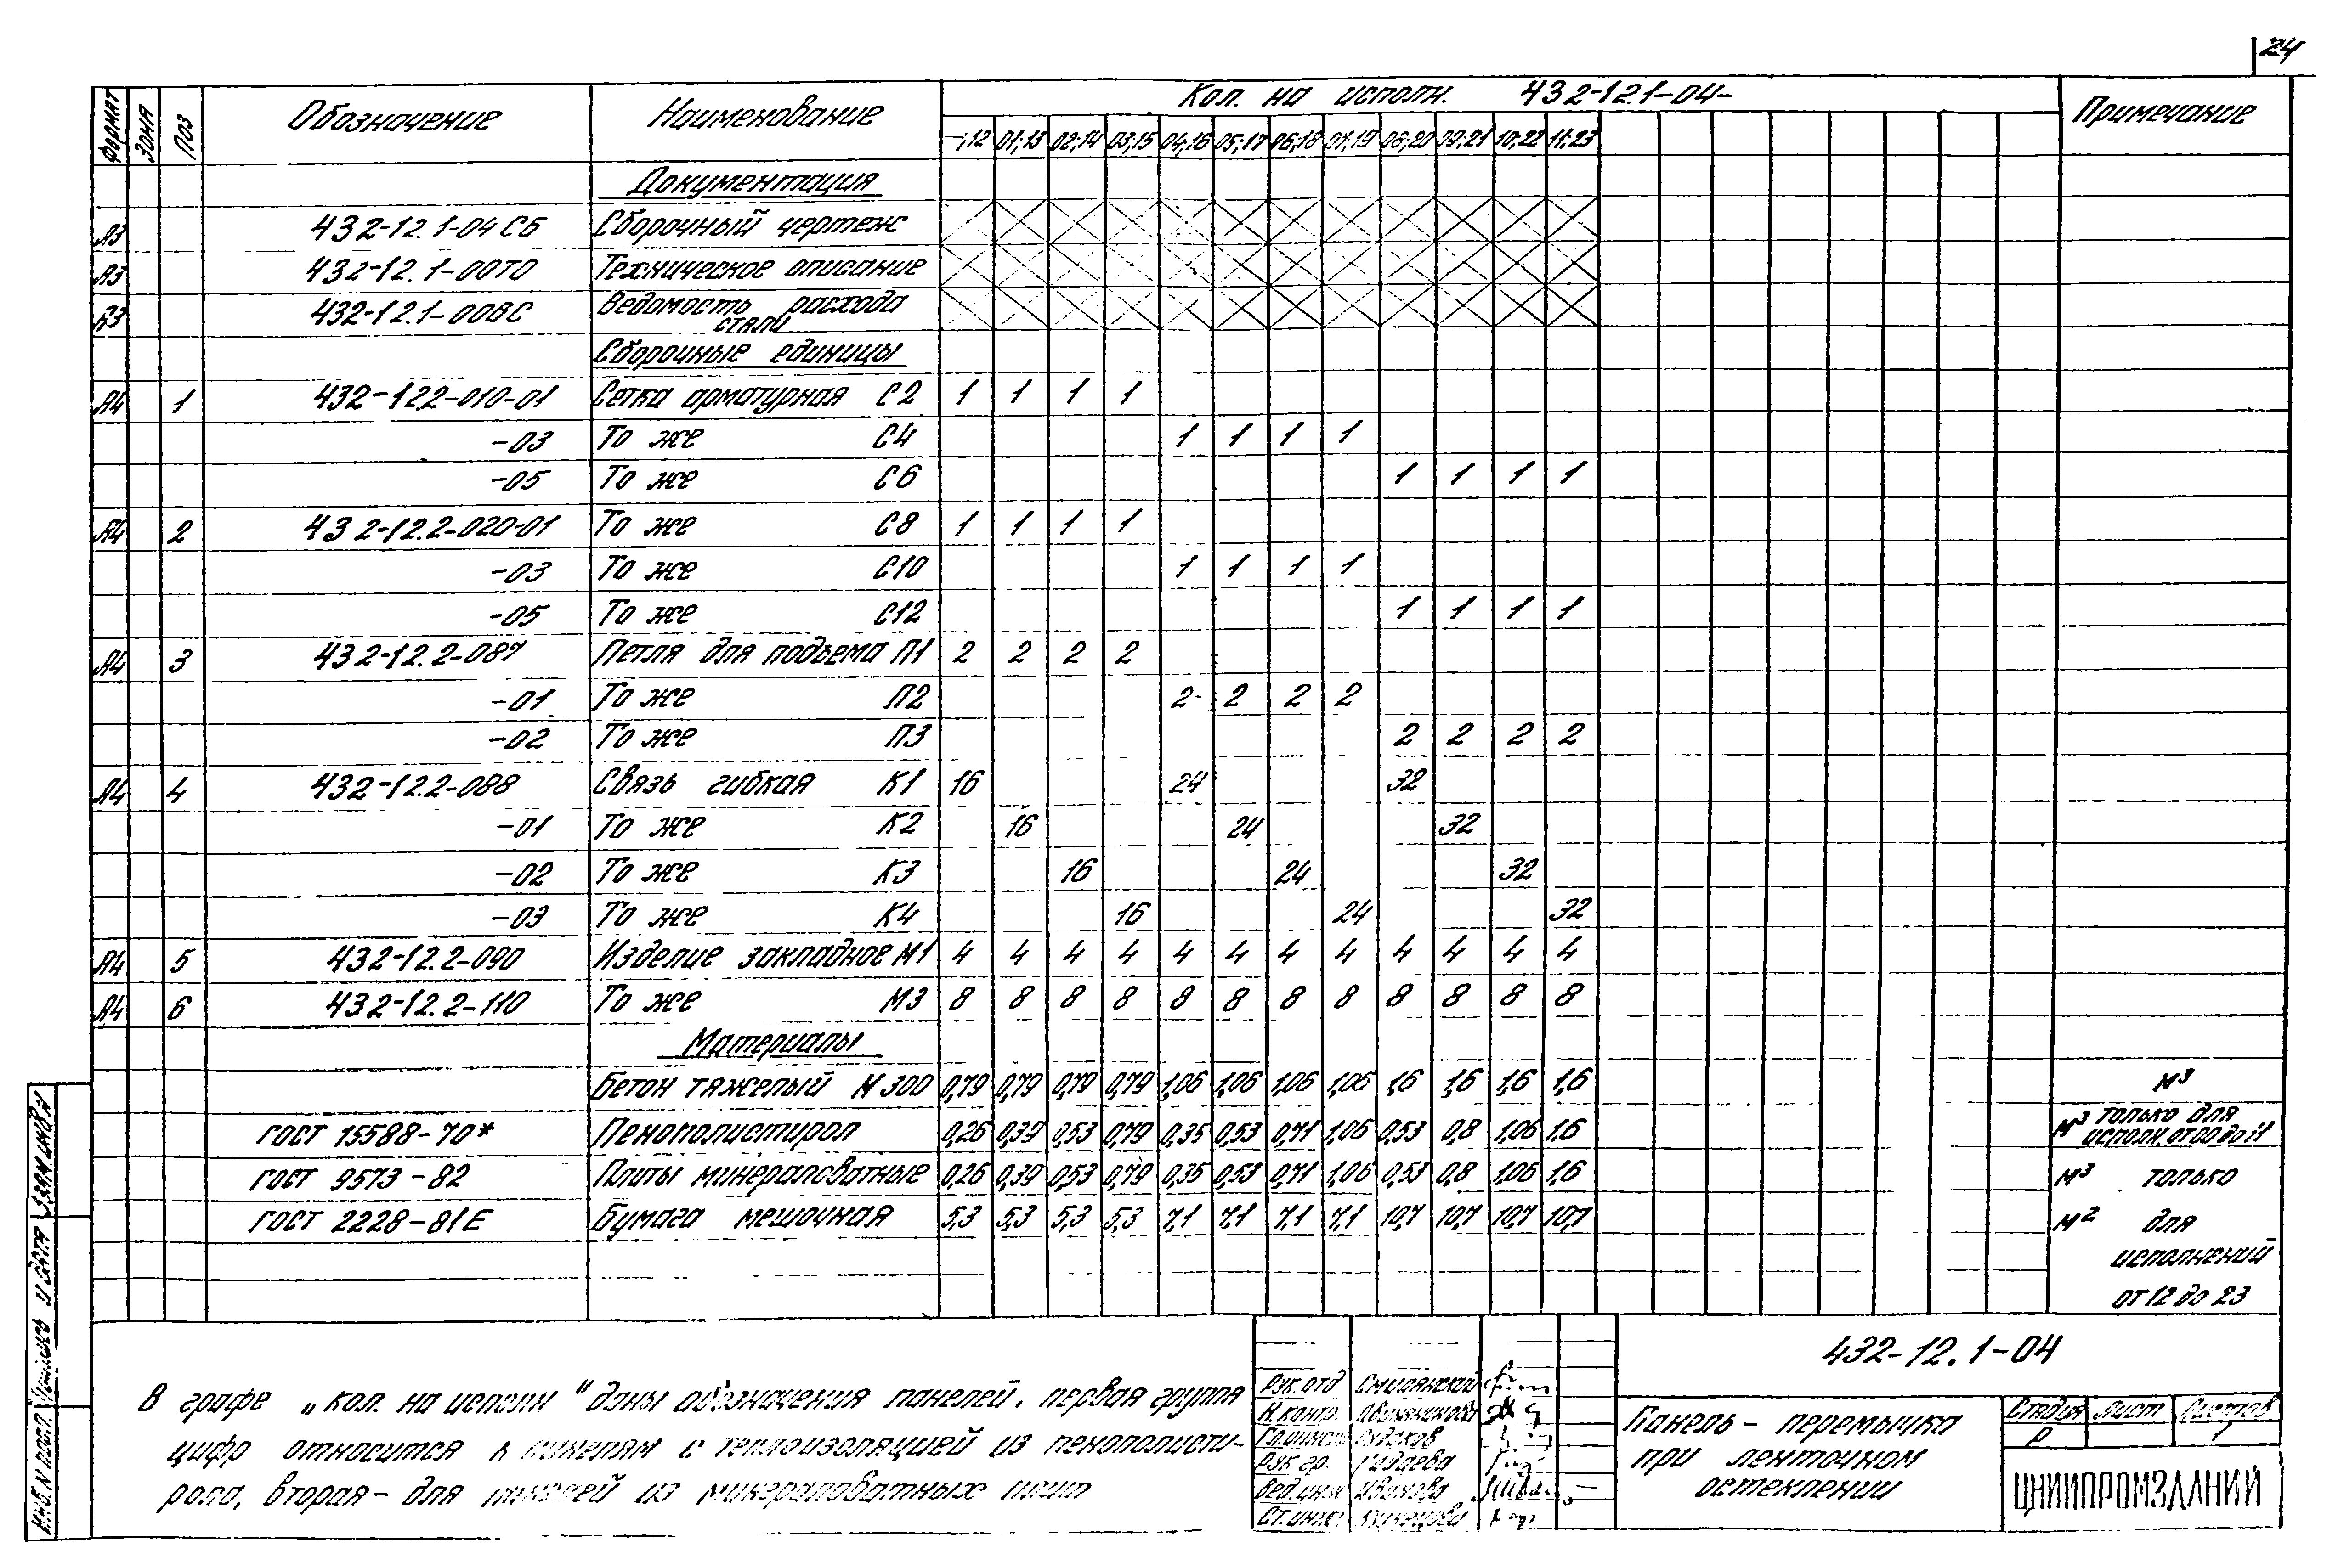 24
Формат Зона Поз Обозначение Наименование Кол. на исполн. 432-12.1-04- Примечание
-;12 01;13 02;14 03;15 04;16 05;17 06;18 07;19 08;20 09;21 10;22 11;23
Документация
А3 432-12.1-04 СБ Сборочный чертеж
А3 432-12.1-00ТО Техническое описание
А3 432-12.1-00ВС Ведомость расхода
стали
Сборочные единицы
А4 1 432-12.2-010-01 Сетка арматурная С2 1 1 1 1
-03 То же С4 1 1 1 1
-05 То же С6 1 1 1 1
А4 2 432-12.2-020-01 То же С8 1 1 1 1
-03 То же С10 1 1 1 1
-05 То же С12 1 1 1 1
А4 3 432-12.2-087 Петля для подъема П1 2 2 2 2
-01 То же П2 2 2 2 2
-02 То же П3 2 2 2 2
А4 4 432-12.2-088 Связь гибкая К1 16 24 32
-01 То же К2 16 24 32
-02 То же К3 16 24 32
-03 То же К4 16 24 32
А4 5 432-12.2-090 Изделие закладное М1 4 4 4 4 4 4 4 4 4 4 4 4
А4 6 432-12.2-110 То же М3 8 8 8 8 8 8 8 8 8 8 8 8
Материалы
Бетон тяжелый М 300 0,79 0,79 0,79 0,79 1,06 1,06 1,06 1,06 1,6 1,6 1,6 1,6 м³
ГОСТ 15588-70* Пенополистирол 0,26 0,39 0,53 0,79 0,35 0,53 0,71 1,06 0,53 0,8 1,06 1,6 м³ только для
исполн. от 00 до 11
ГОСТ 9573-82 Плиты минераловатные 0,26 0,39 0,53 0,79 0,35 0,53 0,71 1,06 0,53 0,8 1,06 1,6 м³ только
ГОСТ 2228-81Е Бумага мешочная 5,3 5,3 5,3 5,3 7,1 7,1 7,1 7,1 10,7 10,7 10,7 10,7 м² для
исполнений
от 12 до 23
В графе „кол. на исполн" даны обозначения панелей. первая группа
цифр относится к панелям с теплоизоляцией из пенополисти-
рола, вторая - для панелей из минераловатных плит
Рук. отд Смилянский
Н. контр.
Гл. инж
Рук. гр.
Вед. инж Иванова
Ст. инж
432-12.1-04
Панель-перемычка
при ленточном
остеклении
Стадия Лист Листов
Р 1
ЦНИИПРОМЗДАНИЙ
Инв. N подл. Подпись и дата Взам. инв. N